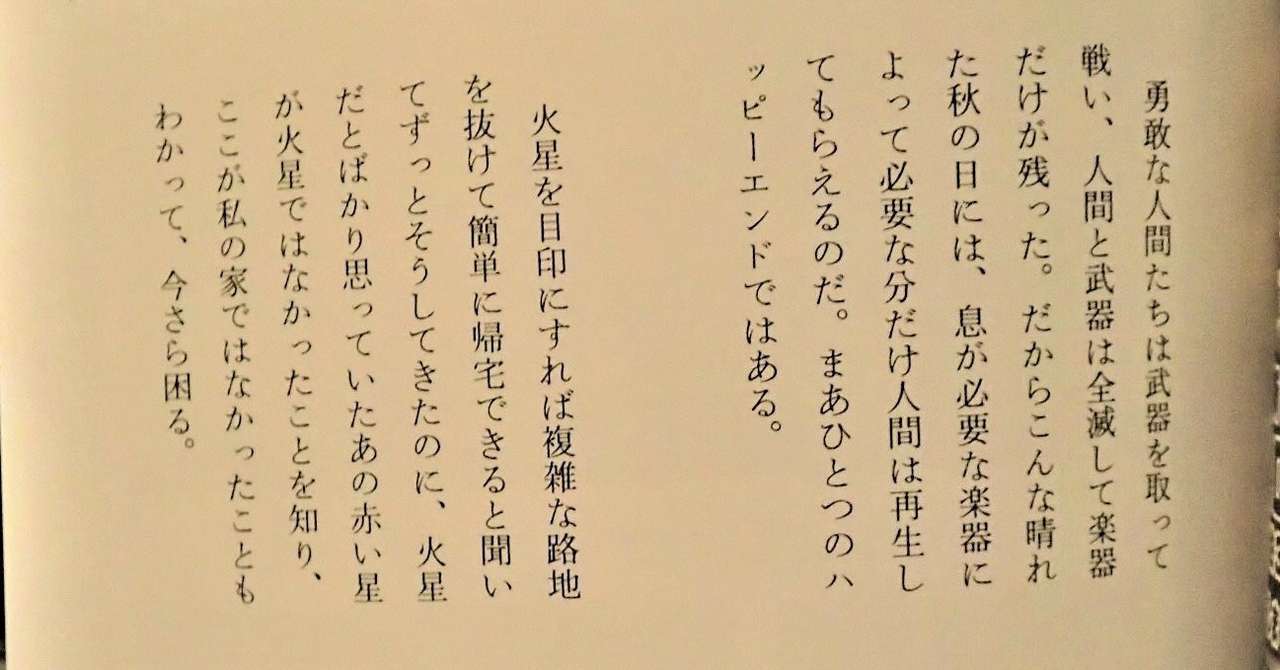 勇敢な人間たちは武器を取って
戦い、人間と武器は全滅して楽器
だけが残った。だからこんな晴れ
た秋の日には、息が必要な楽器に
よって必要な分だけ人間は再生し
てもらえるのだ。まあひとつのハ
ッピーエンドではある。
火星を目印にすれば複雑な路地
を抜けて簡単に帰宅できると聞い
てずっとそうしてきたのに、火星
だとばかり思っていたあの赤い星
が火星ではなかったことを知り、
ここが私の家ではなかったことも
わかって、今さら困る。